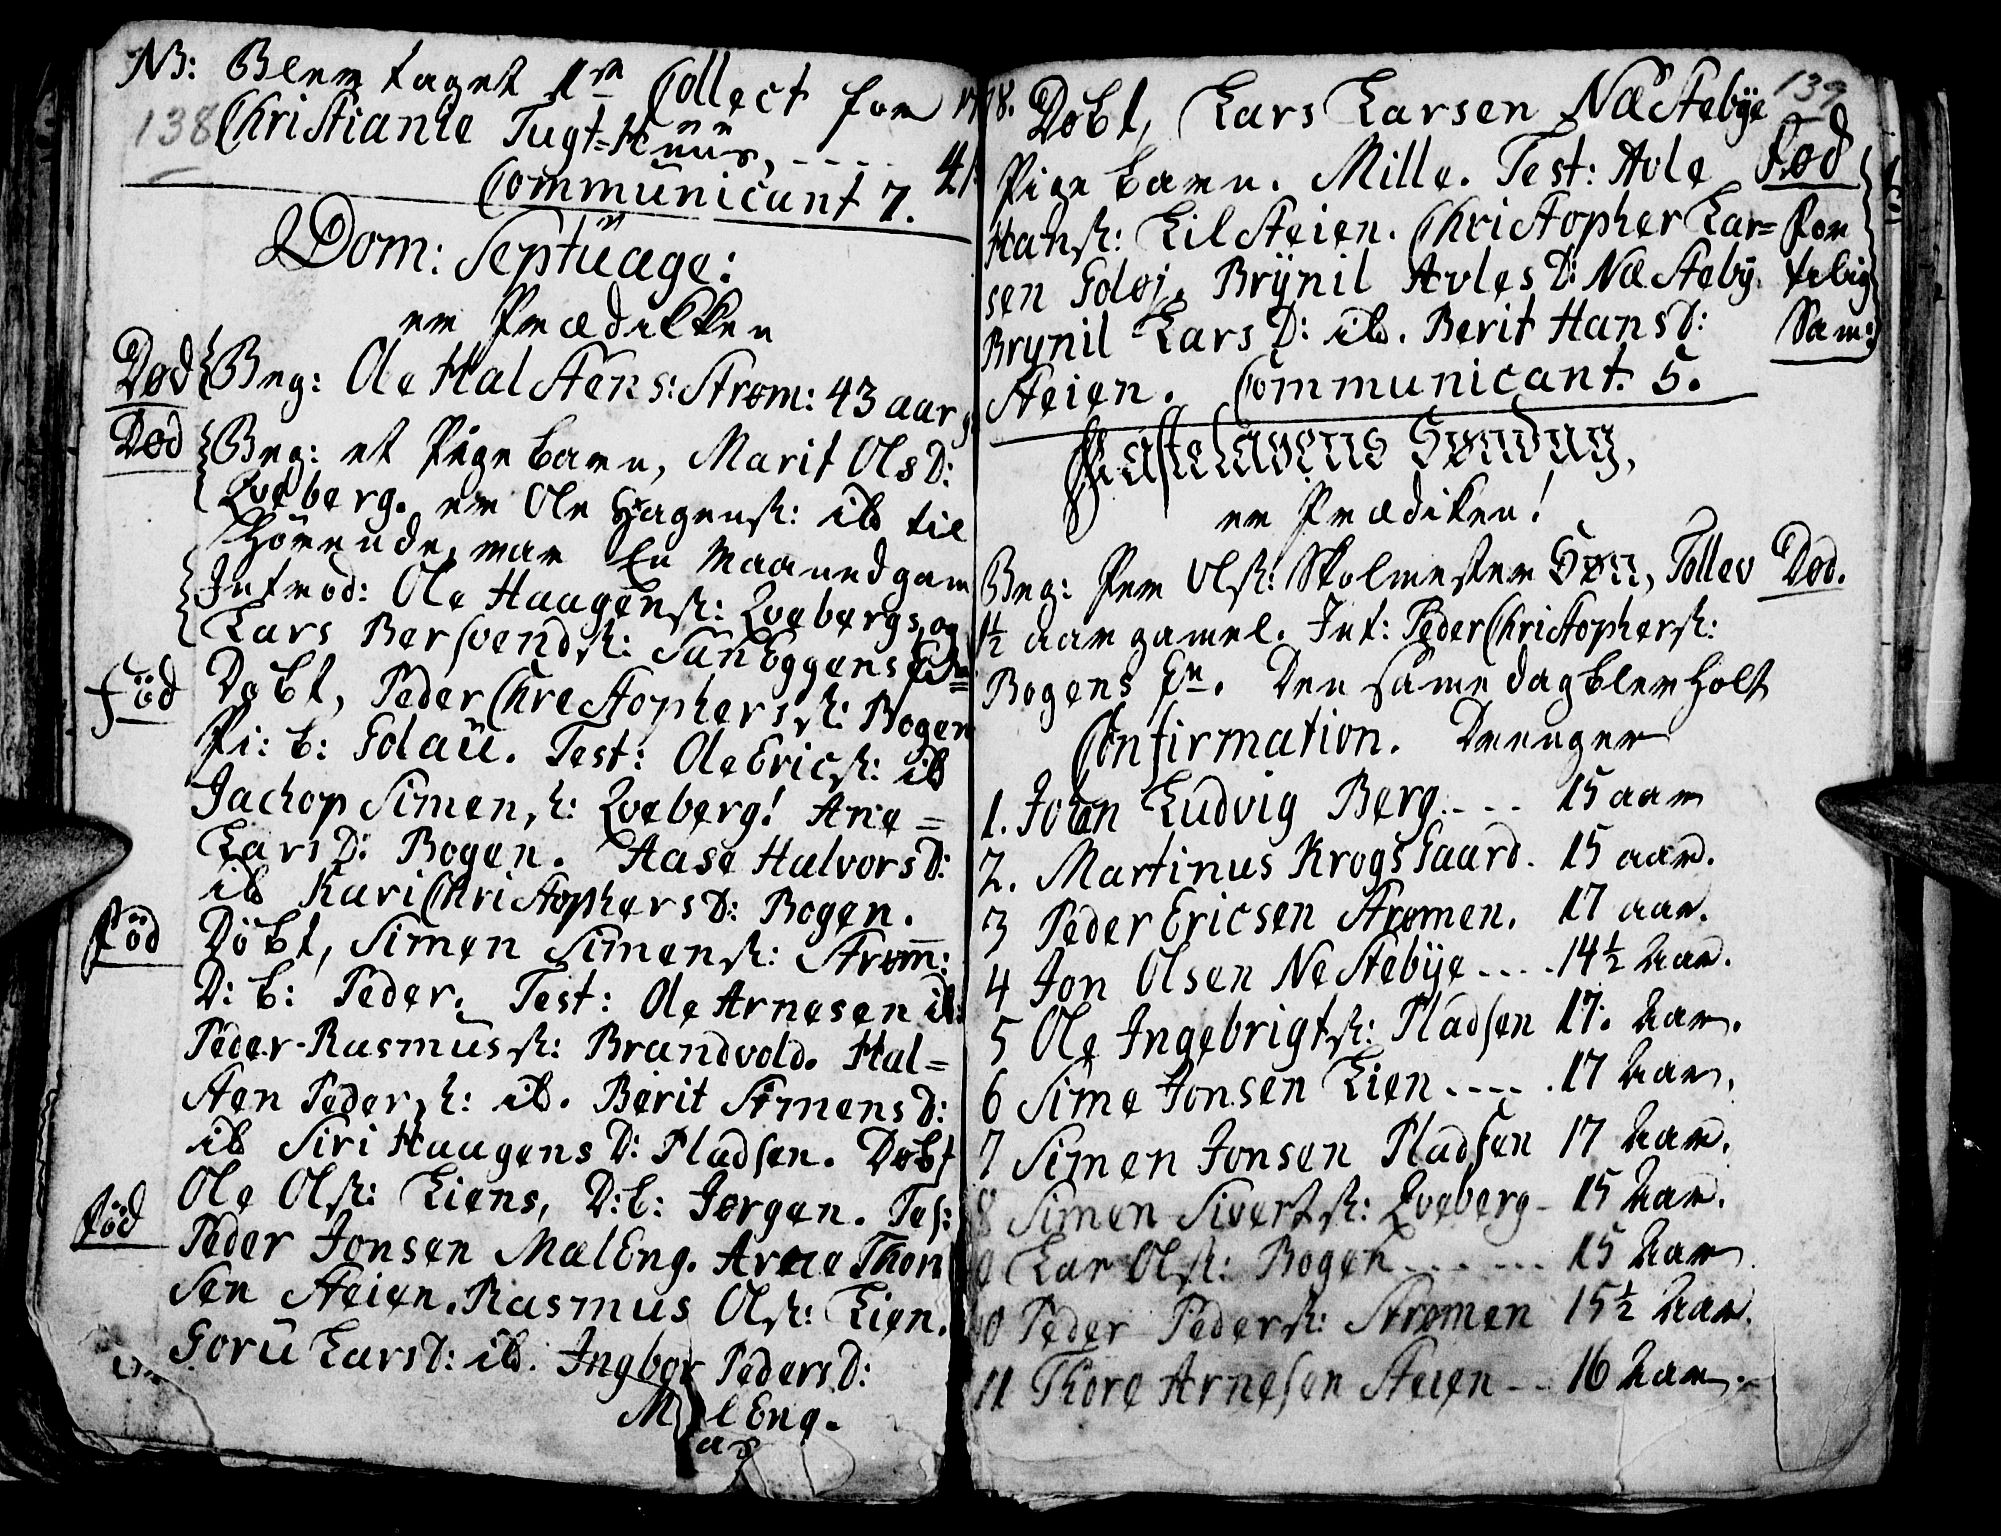 NB: Blev taget 1ste Collect for
138 Christiania Tugt-Huus, ----- 4
Communicant 7.
Dom: Septuage:
er Prædikken
Død Beg: Ole HalStens: Strøm: 43 aar g
Død Beg: et Pige barn, Marit OlsD:
Qveberg. er Ole Hagens: ib til
Hörende, var En Maaned gam
Introd: Ole Haugens: Qvebergs, og
Lars Bersvends: SanEggens
Föd Döbt, Peder Chrestophers: Bogen
Pi: b: Golau. Test: Ole Erics: ib
Jachop Simens: Qveberg! Ane=
LarsD: Bogen. Aase HalvorsD:
ib Kari ChriStophersD: Bogen.
Föd Döbt, Simen Simens: Strøm:
D: b: Peder. Test: Ole Arnesen ib:
Peder Rasmuss: Brandvold. Hal=
Sten Peders: ib. Berit SimensD:
ib Siri HaugensD: Pladsen. Døbt
Föd Ole Ols: Liens, D: b: Jørgen. Tes:
Peder Jonsen MælEng. Arne Thor
sen Steien. Rasmus Ols: Lien.
Goru LarsD: ib. Ingbor PedersD:
MælEng.
139
78. Døbt, Lars Larsen NæStebye Fød
Pige barn. Mille. Test: Avle
Hans: LilSteien. ChriStopher Lar= For
sen Goløj. Brÿnil AvlesD: NæSteby. felig
Brynil LarsD: ib. Berit HansD: Sam:
Steien. Communicant. 5.
Fastelavens Søndag,
er Prædiken!
Beg: Per Ols: Skolmester Søn, Tollev Død.
1½ aar gamel. Int: Peder ChriStophers:
Bogens . Den same dag blev Holt
Confirmation. Drenger
1. Johan Ludvig Berg.... 15 aar
2. Martinus KrogsGaard. 15 aar.
3 Peder Ericsen Strømen. 17 aar.
4 Jon Olsen NeStebye.... 14½ aar.
5 Ole Ingebrigts: Pladsen 17. aar.
6 Sime Jonsen Lien..... 17 aar.
7 Simen Jonsen Pladsen 17 aar.
8 Simen Siverts: Qveberg- 15 aar.
9 Lar Ols: Bogen....... 15 aar
10 Peder Peders: Strømen 15½ aar.
11 Thore Arnesen Steien... 16 aar.